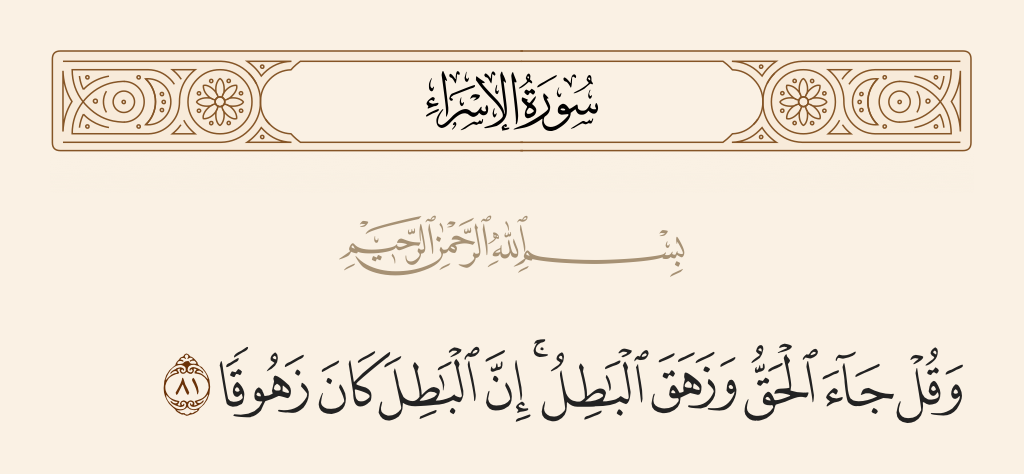 سُورَةُ الإِسْرَاءِ
بِسْمِ ٱللَّهِ ٱلرَّحْمَٰنِ ٱلرَّحِيمِ
وَقُلْ جَآءَ ٱلْحَقُّ وَزَهَقَ ٱلْبَٰطِلُ ۚ إِنَّ ٱلْبَٰطِلَ كَانَ زَهُوقًا ٨١